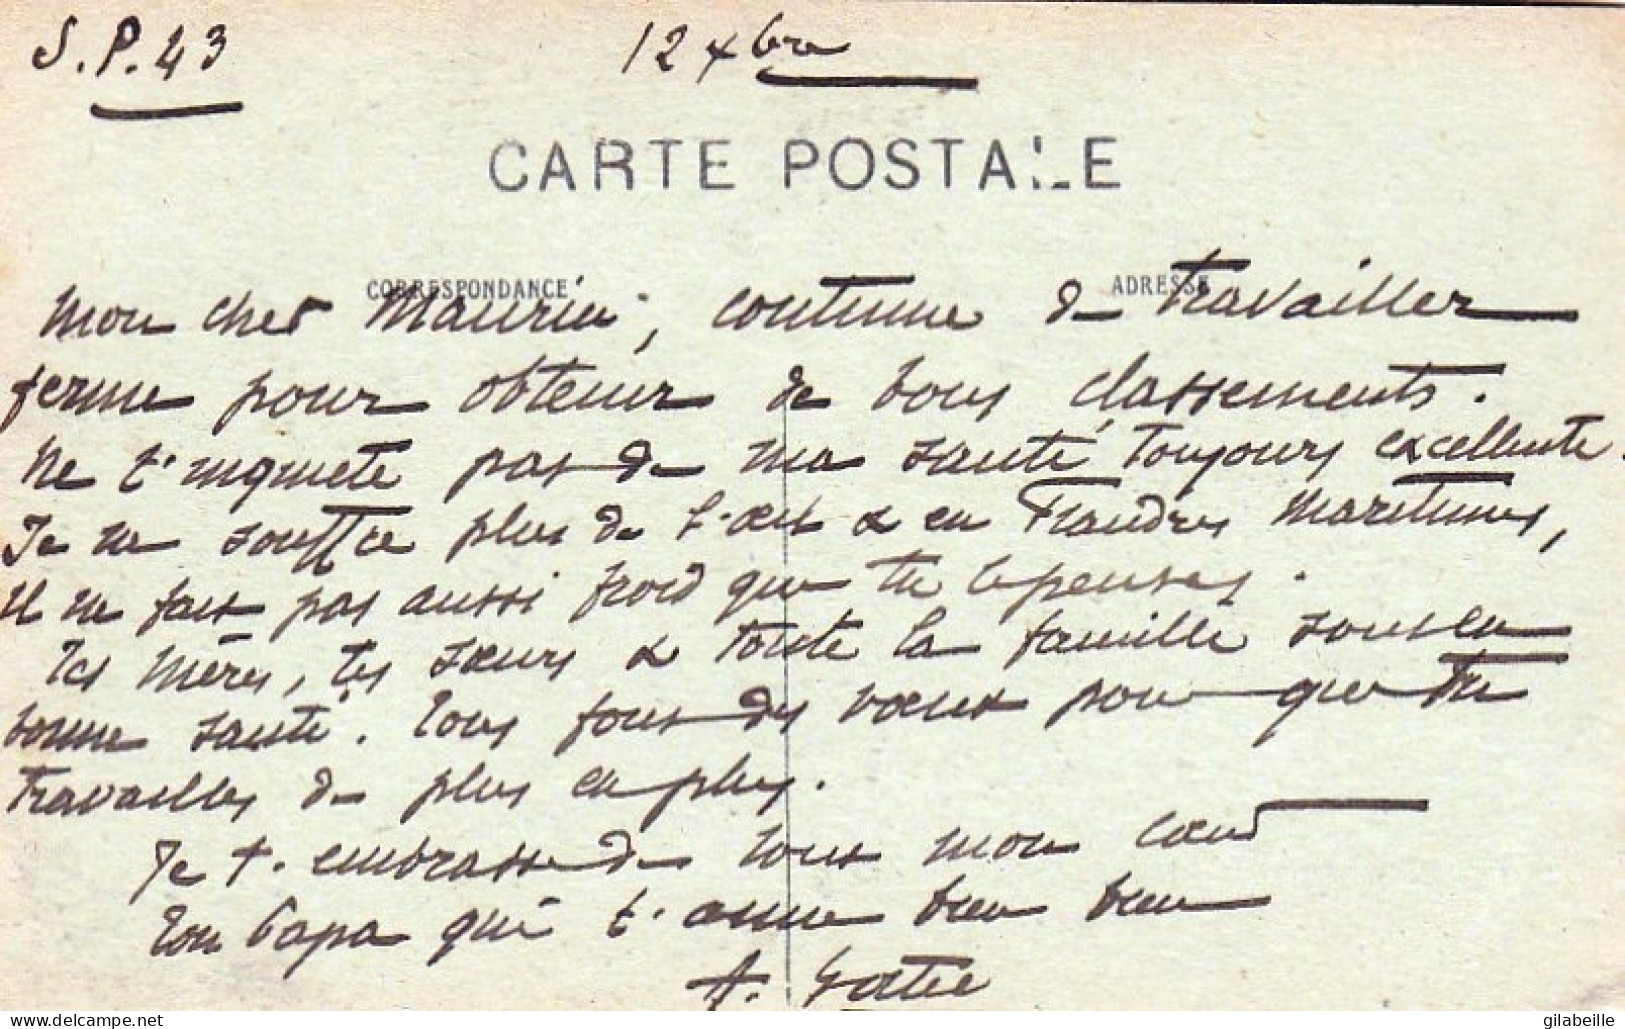 S.P. 43
12 xbre
CARTE POSTALE
CORRESPONDANCE
ADRESSE
Mon cher Maurice, continue de travailler
ferme pour obtenir de bons classements.
Ne t'inquiète pas de ma santé toujours excellente.
Je ne souffre plus de l'œil & en Flandres Maritimes,
il ne fait pas aussi froid que tu le penses.
Tes mères, tes sœurs & toute la famille sont en
bonne santé. Tous font des vœux pour que tu
travailles de plus en plus.
Je t'embrasse de tout mon cœur
Ton Papa qui t'aime bien bien
A.
gilabeille